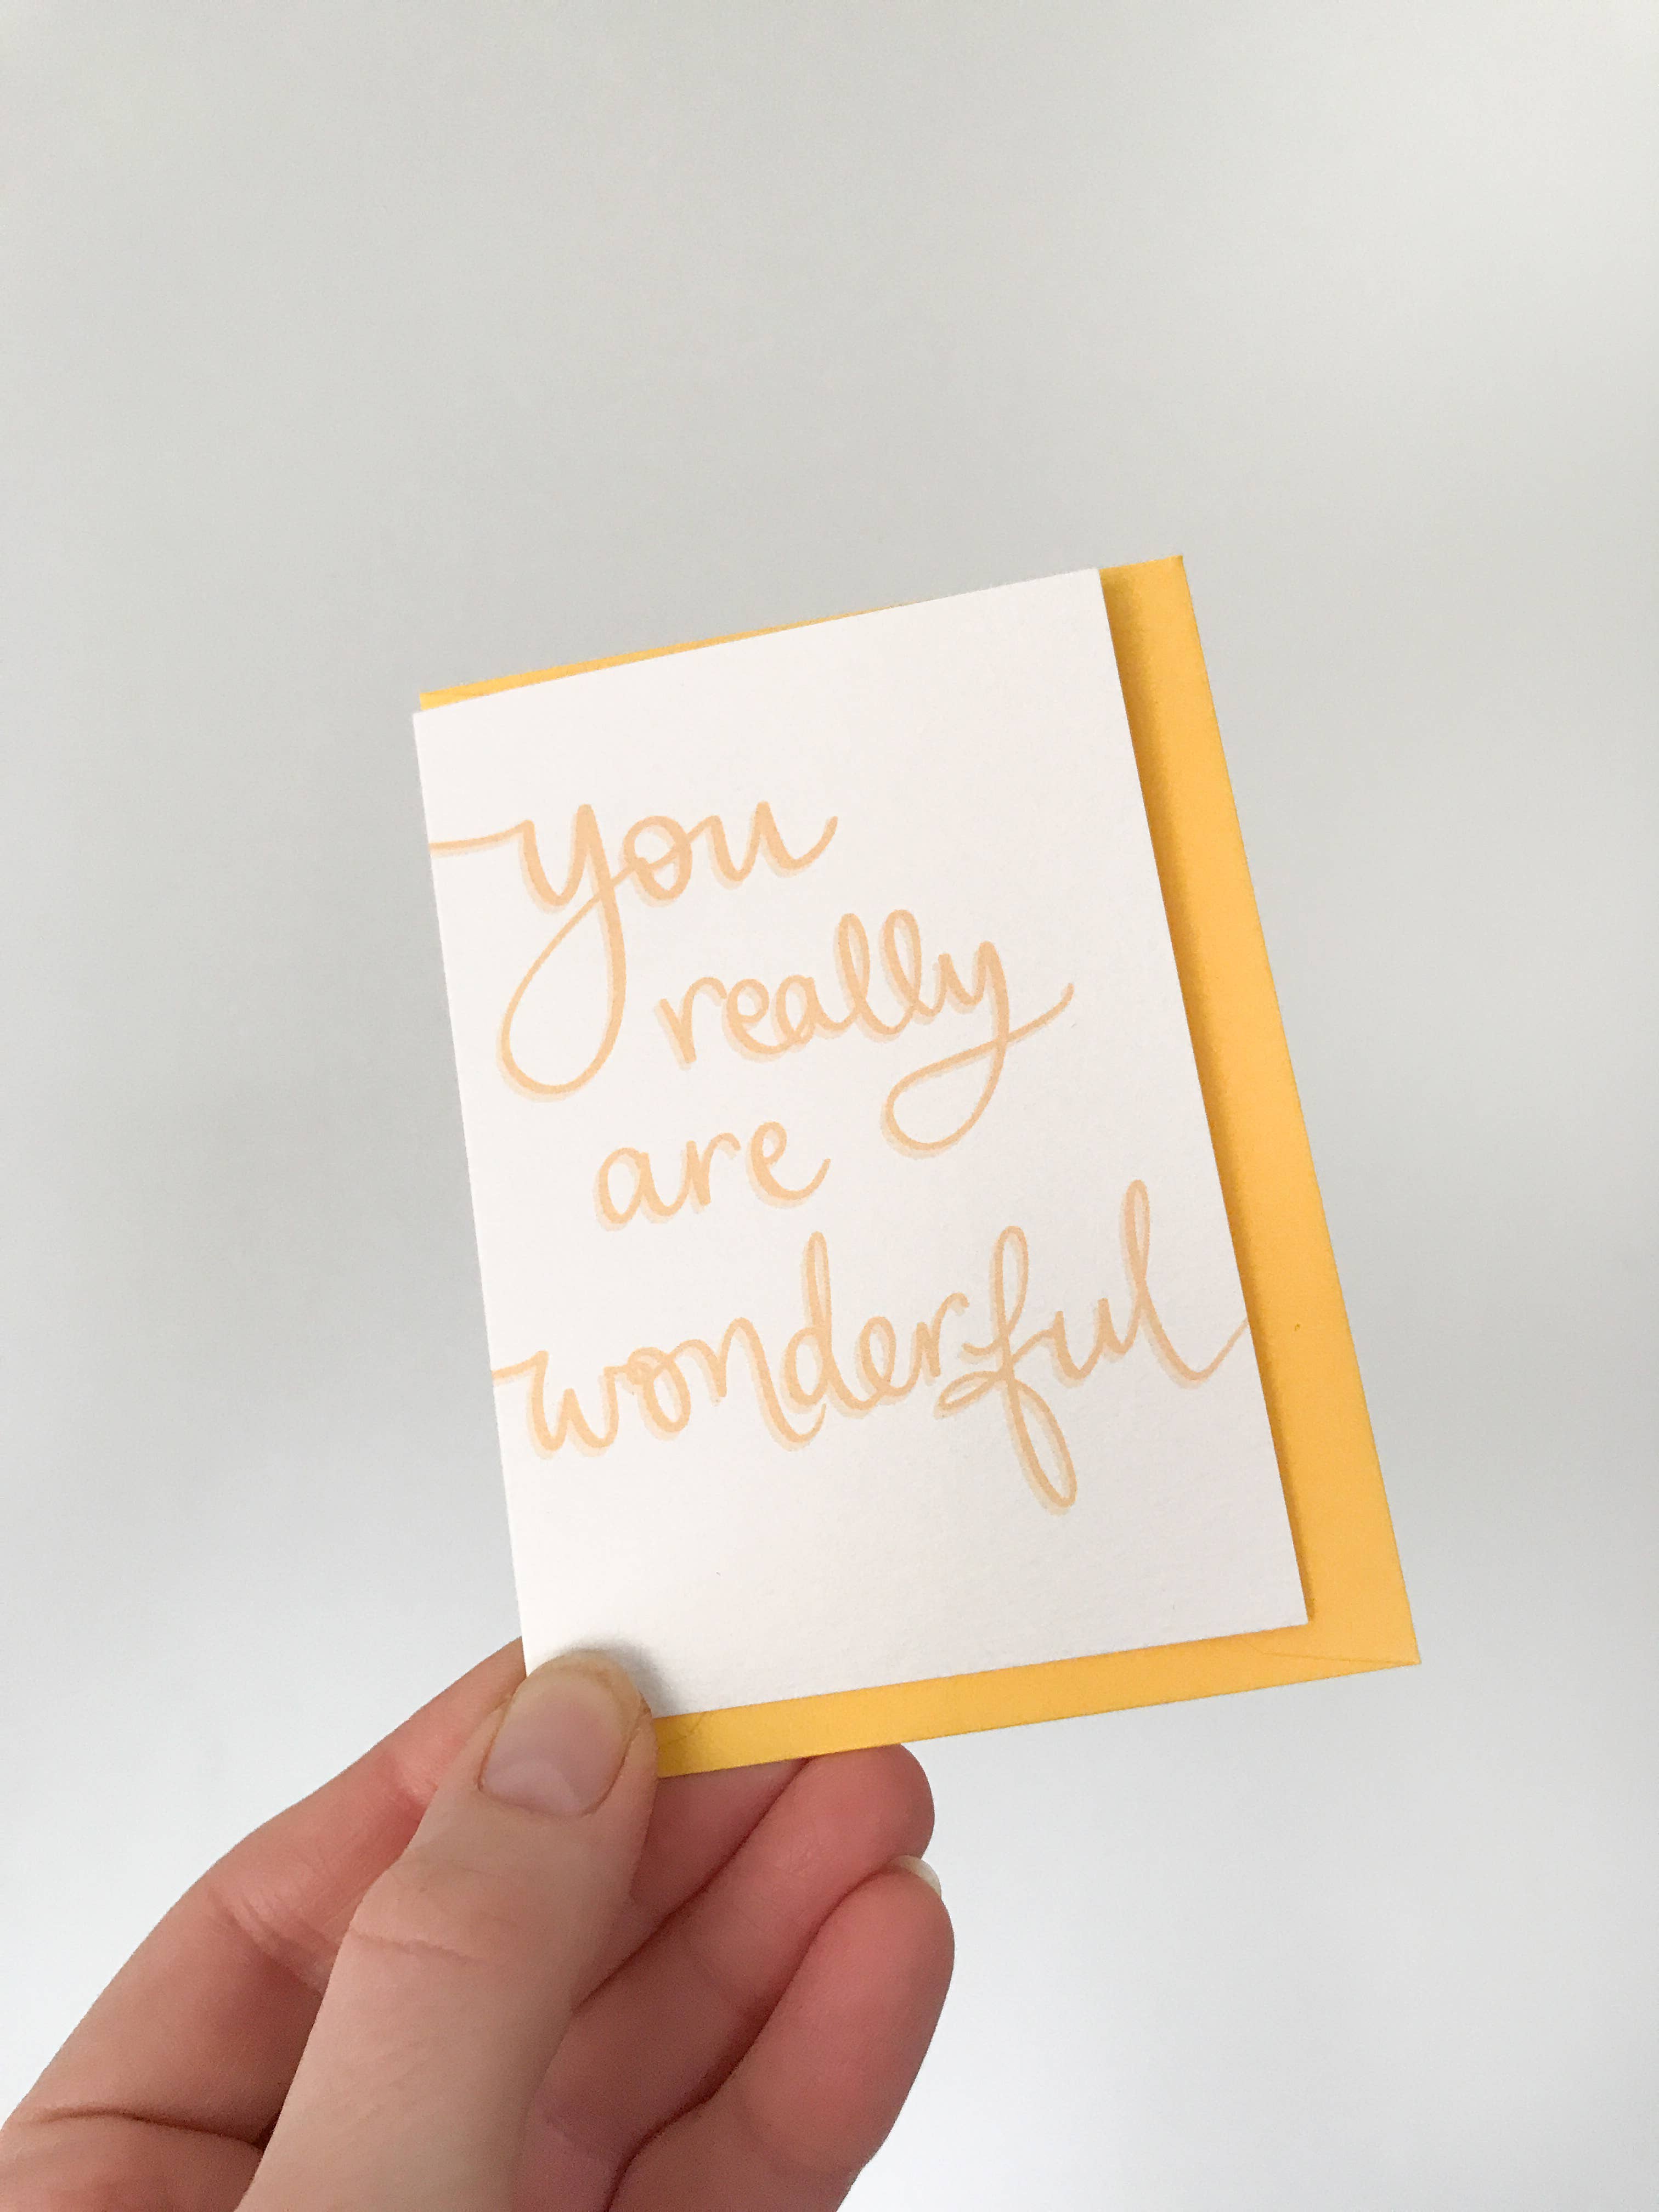 you
really
are
wonderful